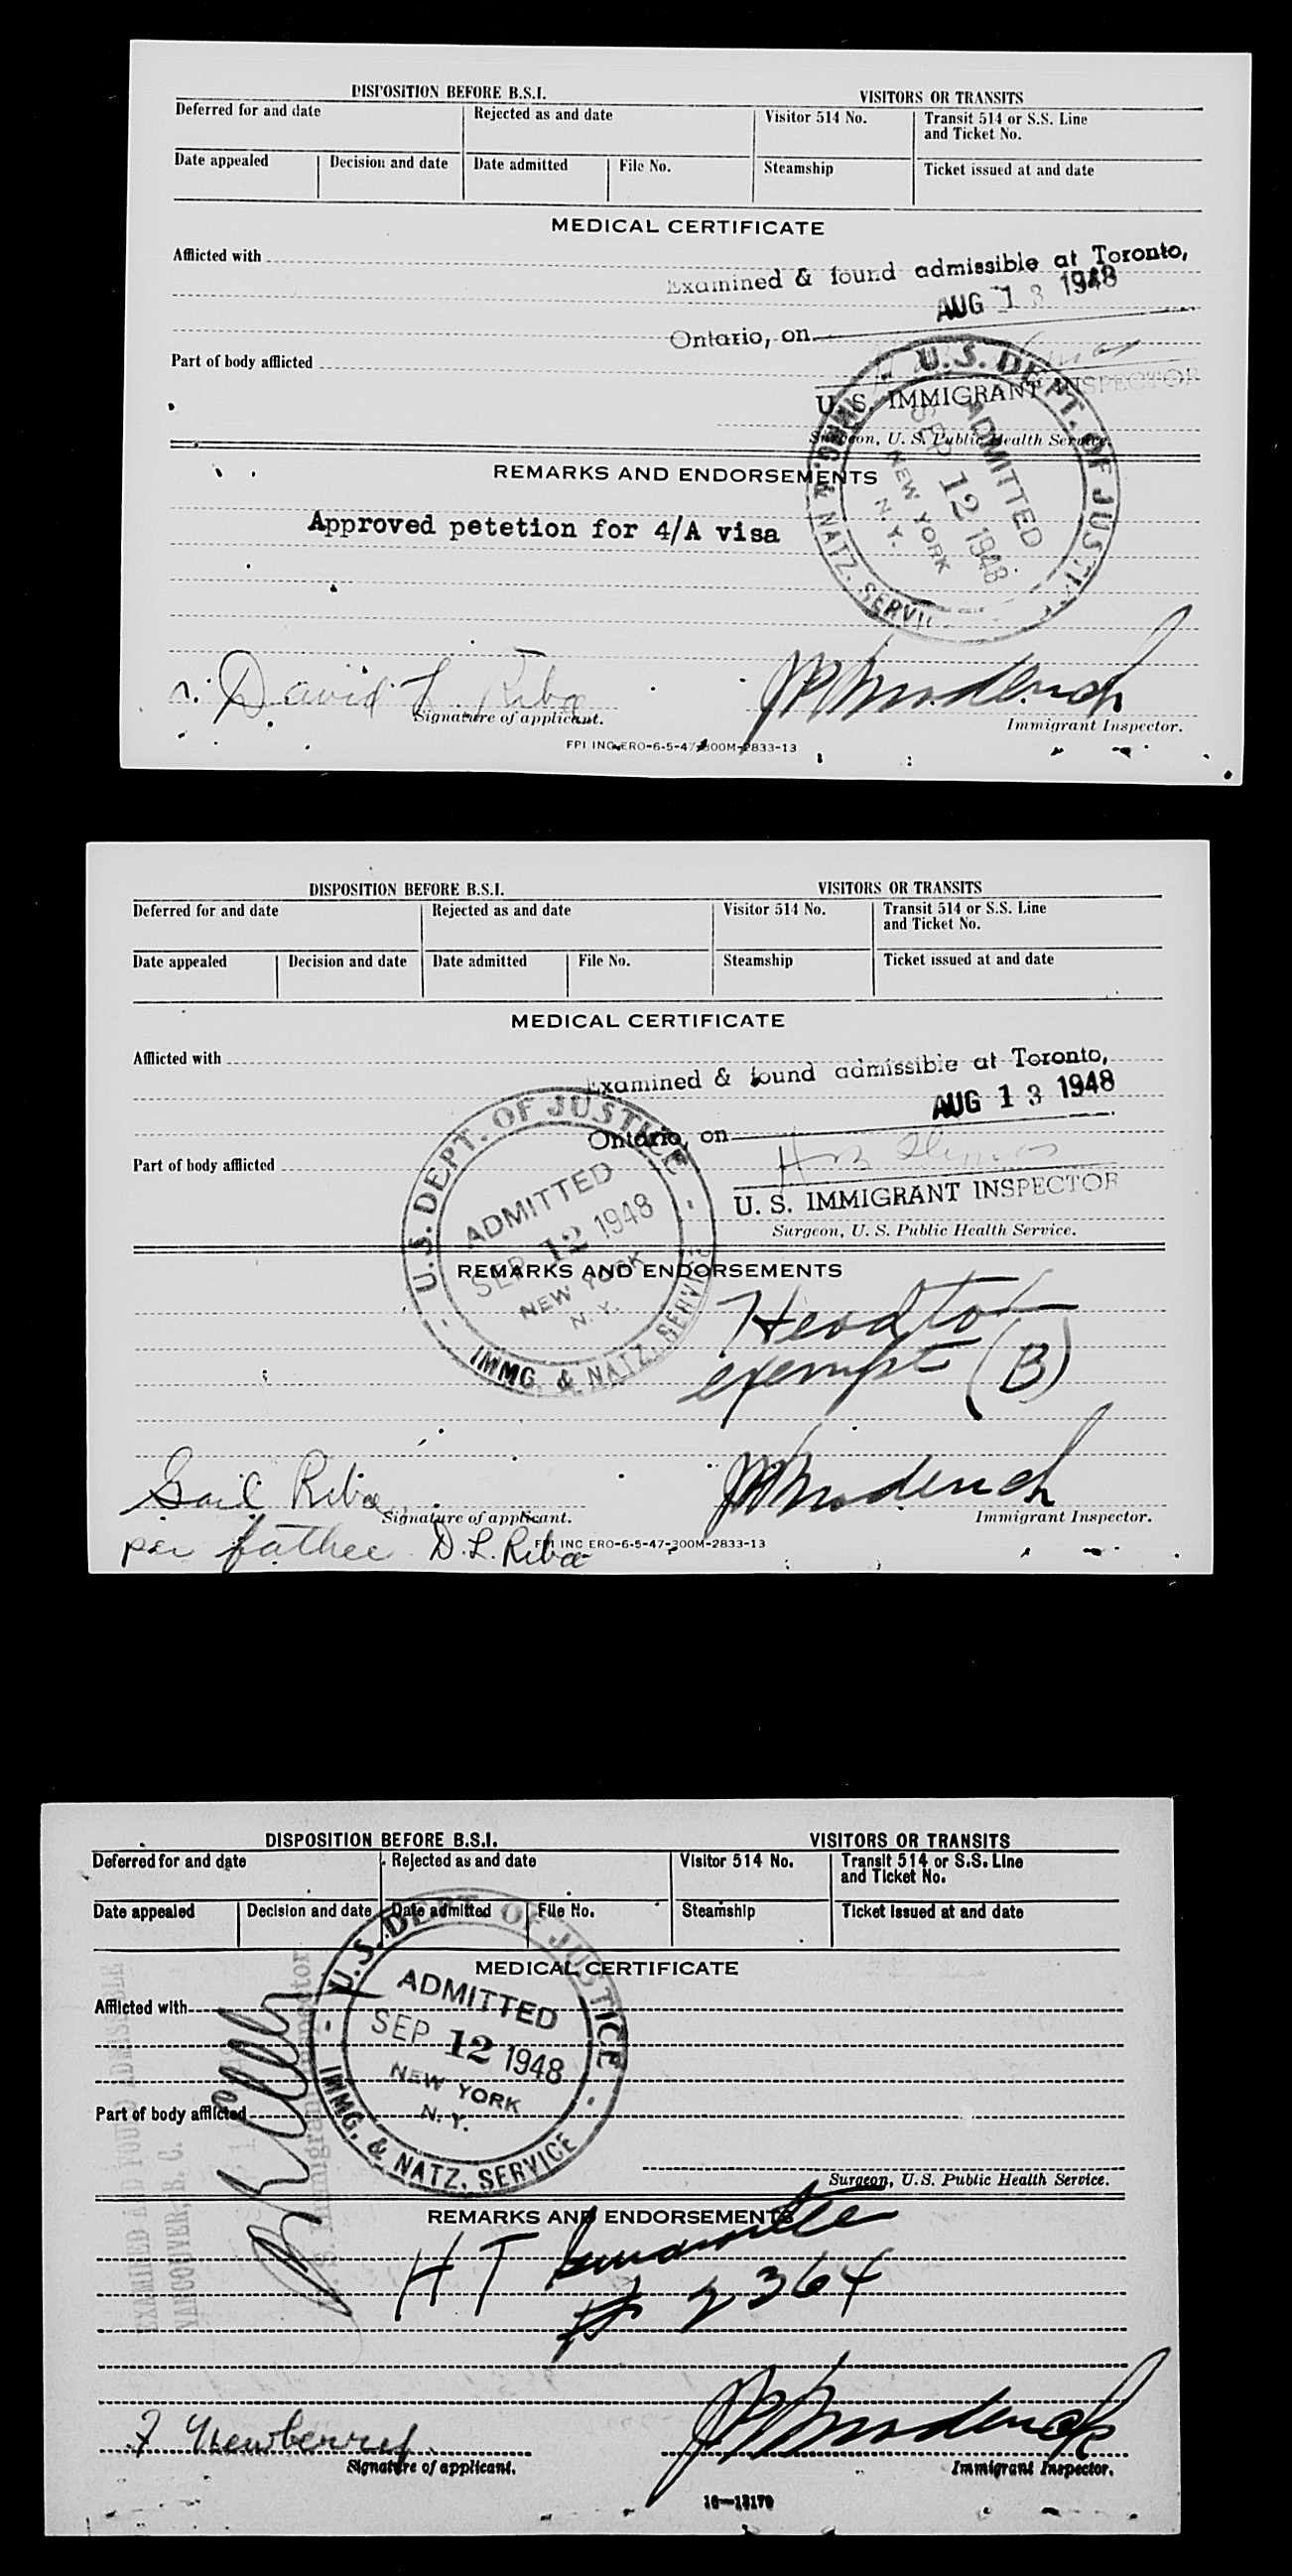 DISPOSITION BEFORE B.S.I.
VISITORS OR TRANSITS
Deferred for and date
Rejected as and date
Visitor 514 No.
Transit 514 or S.S. Line
and Ticket No.
Date appealed
Decision and date
Date admitted
File No.
Steamship
Ticket issued at and date
MEDICAL CERTIFICATE
Afflicted with
Examined & found admissible at Toronto,
AUG 13 1948
Ontario, on
Part of body afflicted
U. S. IMMIGRANT INSPECTOR
Surgeon, U. S. Public Health Service.
U.S. DEPT. OF JUSTICE
ADMITTED
SEP 12 1948
NEW YORK
N. Y.
IMMG. & NATZ. SERVICE
REMARKS AND ENDORSEMENTS
Approved petetion for 4/A visa
David L. Riba
Signature of applicant.
Immigrant Inspector.
FPI INC ERO-6-5-47-300M-2833-13
DISPOSITION BEFORE B.S.I.
VISITORS OR TRANSITS
Deferred for and date
Rejected as and date
Visitor 514 No.
Transit 514 or S.S. Line
and Ticket No.
Date appealed
Decision and date
Date admitted
File No.
Steamship
Ticket issued at and date
MEDICAL CERTIFICATE
Afflicted with
Examined & found admissible at Toronto,
AUG 13 1948
Ontario, on
Part of body afflicted
U. S. IMMIGRANT INSPECTOR
Surgeon, U. S. Public Health Service.
U.S. DEPT. OF JUSTICE
ADMITTED
SEP 12 1948
NEW YORK
N. Y.
IMMG. & NATZ. SERVICE
REMARKS AND ENDORSEMENTS
Headtax
exempt (B)
Gail Riba
Signature of applicant.
Immigrant Inspector.
per father D.L. Riba
FPI INC ERO-6-5-47-300M-2833-13
DISPOSITION BEFORE B.S.I.
VISITORS OR TRANSITS
Deferred for and date
Rejected as and date
Visitor 514 No.
Transit 514 or S.S. Line
and Ticket No.
Date appealed
Decision and date
Date admitted
File No.
Steamship
Ticket issued at and date
MEDICAL CERTIFICATE
Afflicted with
Part of body afflicted
Surgeon, U.S. Public Health Service.
U.S. DEPT OF JUSTICE
ADMITTED
SEP 12 1948
NEW YORK
N. Y.
IMMG. & NATZ. SERVICE
EXAMINED AND FOUND ADMISSIBLE
VANCOUVER, B. C.
U. S. Immigrant Inspector
REMARKS AND ENDORSEMENTS
HT guarantee
# 2364
F Newberry
Signature of applicant.
Immigrant Inspector.
16—13170